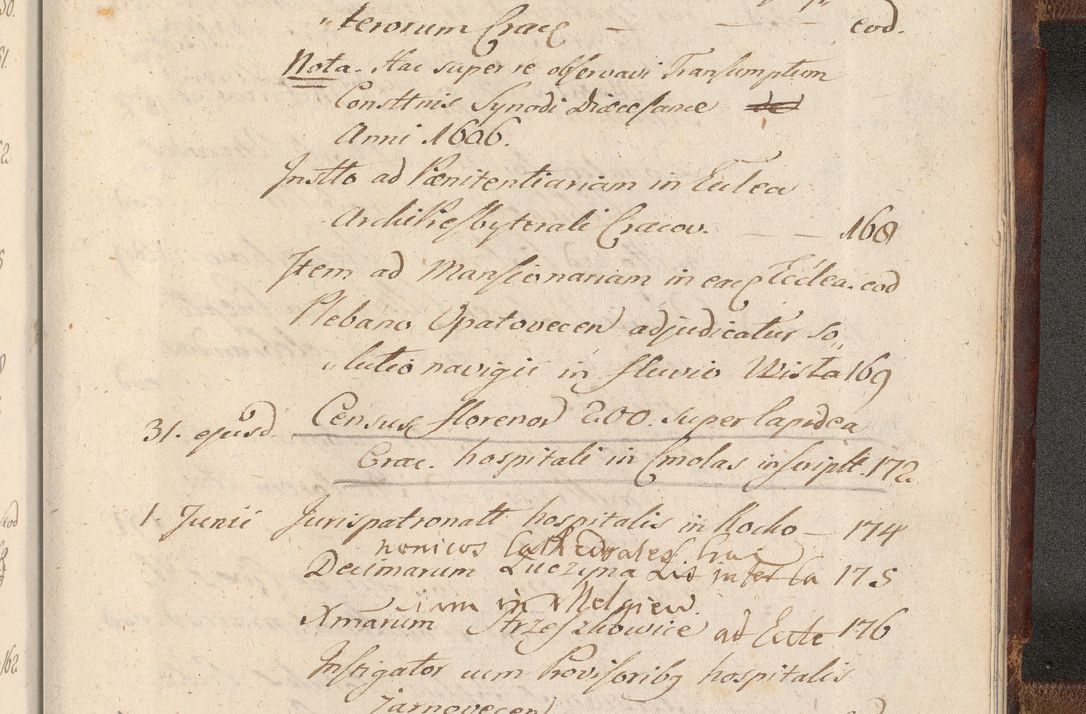 „terorum Crac – — — eod.
Nota. Hac super re observavi Transumptum
Consttnis Synodi Diæcesanæ
Anni 1606.
Insttto ad Pœnitentiariam in Eclea
ArchiPresbyterali Cracov. — — 168
Item ad Mansionariam in eaq Ecclea. eod
Plebano Opatovecen adjudicatur So„
„lutio navigii in fluvio Wista 169
31. ejusd. Census florenor 200. super lapidea
Crac. hospitali in Cmolas inscriptt. 172
1. Junii Jurispatronatt hospitalis in Kocko — 174
nonicos Cathedrales Crac
Decimarum Luczyna Lis inter Ca 175
iam in Melgiew.
Xmarum Strzeszkowice ad Eccle 176
Instigator cum Provisoribq hospitalis
Jarnovecen
62
51.
162
eod